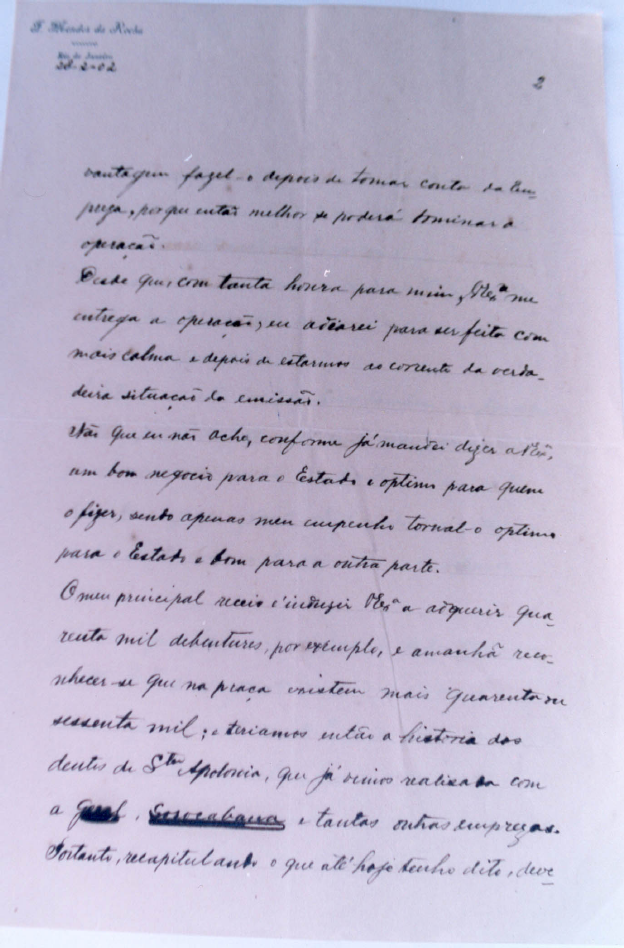 J. Mendes da Rocha
Rio de Janeiro
28-2-02
2
vantagem fazel-o depois de tomar conta da Em-
preza, porque então melhor se poderá dominar a
operação.
Desde que, com tanta honra para mim, VExª me
entrega a operação, eu adiarei para ser feita com
mais calma e depois de estarmos ao corrente da verda-
deira situação da emissão.
Não que eu não ache, conforme já mandei dizer a VExª,
um bom negocio para o Estado e optimo para quem
o fizer, sendo apenas meu empenho tornal-o optimo
para o Estado e bom para a outra parte.
O meu principal receio é induzir VExª a adquerir qua-
renta mil debentures, por exemplo, e amanhã reco-
nhecer-se que na praça existem mais quarenta ou
sessenta mil; e teriamos então a historia dos
dentes de Stª Apolonia, que já vimos realisada com
a Geral, Sorocabana e tantas outras emprezas.
Portanto, recapitulando o que até hoje tenho dito, deve